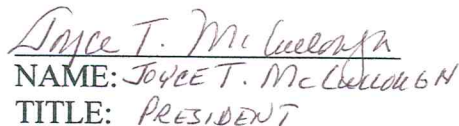 Joyce T. McCullough
NAME: JOYCE T. McCULLOUGH
TITLE: PRESIDENT